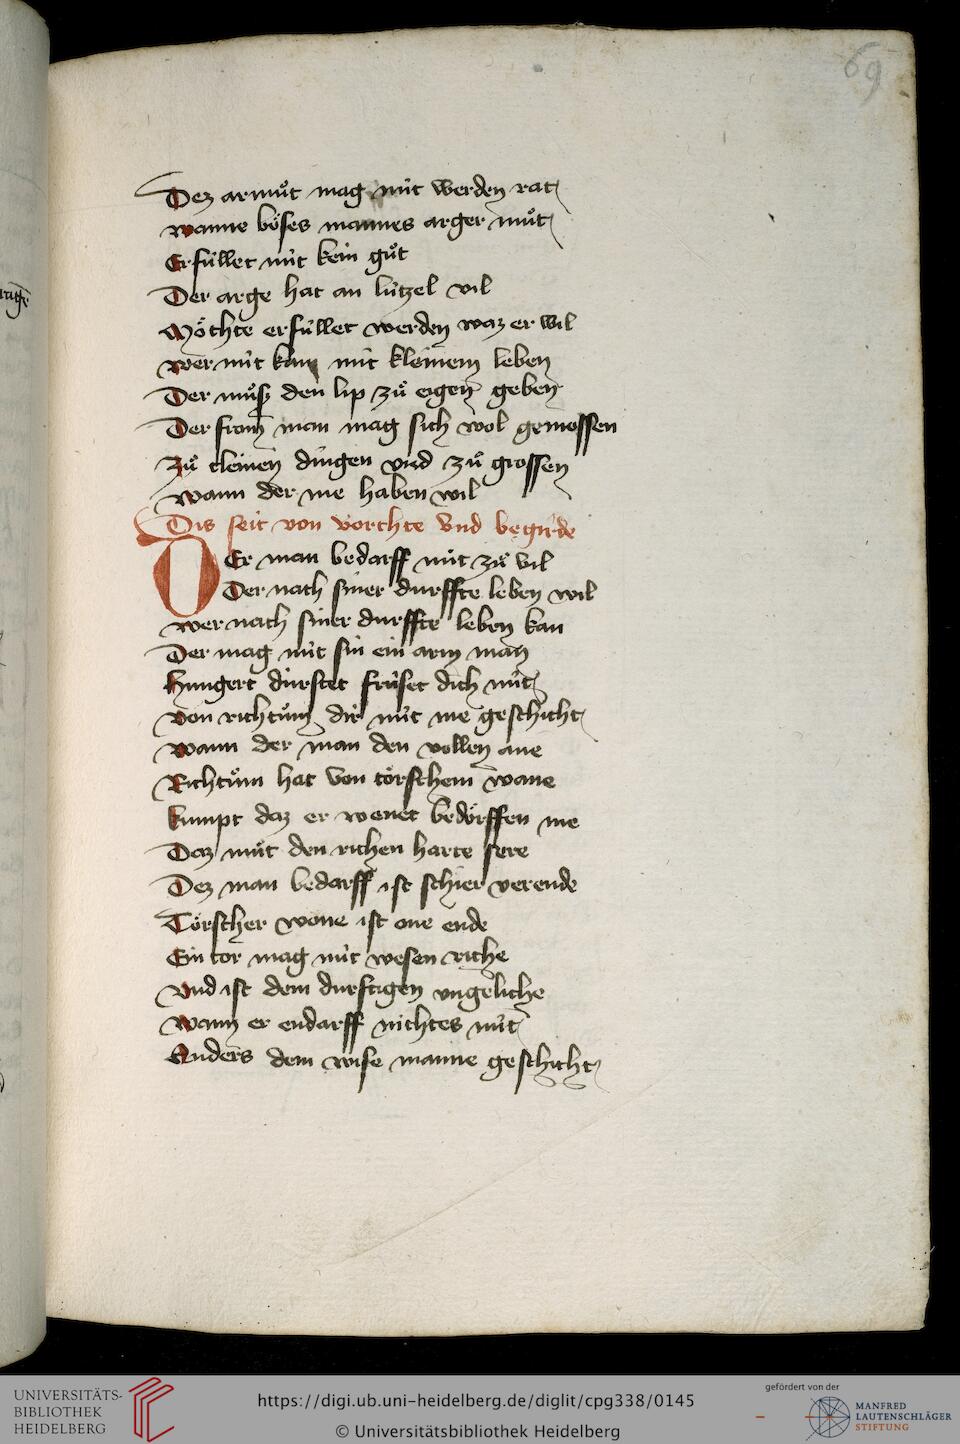 69
Dez armuͦt mag nüt werden rat
wanne böses mannes arger muͦt
Erfüllet nüt kein guͦt
Der arge hat an lützel vil
Möchte erfüllet werden waz er wil
wer nüt kan mit kleinem leben
Der muͦsz den lip zuͦ eigen geben
Der from man mag sich wol genossen
Zuͦ cleinen dingen vnd zuͦ grossen
wann der me haben wil
Dis seit von vorchte vnd begirde
Er man bedarff nüt zuͦ vil
Der nach siner durffte leben wil
wer nach siner durffte leben kan
Der mag nüt sin ein arm man
Hungert dürstet früset dich nüt
von richtuͦm dir nüt me geschicht
wann der man den vollen ane
Richtuͦm hat von törschem wane
kumpt daz er wenet bedörffen me
Daz muͤt den richen harte sere
Dez man bedarff ist schier verende
Törscher wone ist one ende
Ein tor mag nüt wesen riche
vnd ist dem durftigen vngeliche
wann er endarff nichtes nüt
Anders dem wise manne geschicht
UNIVERSITÄTS-
BIBLIOTHEK
HEIDELBERG
https://digi.ub.uni-heidelberg.de/diglit/cpg338/0145
© Universitätsbibliothek Heidelberg
gefördert von der
MANFRED
LAUTENSCHLÄGER
STIFTUNG